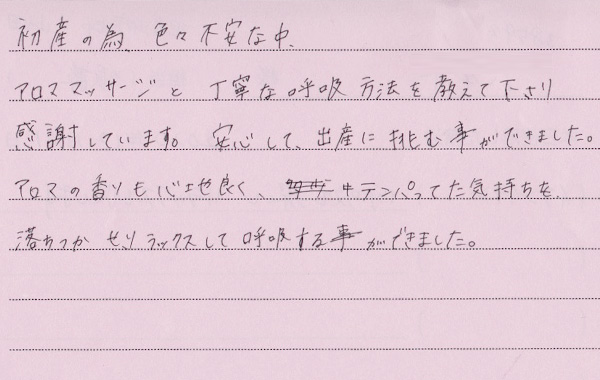 初産の為、色々不安な中、
アロママッサージと丁寧な呼吸方法を教えて下さり
感謝しています。安心して、出産に挑む事ができました。
アロマの香りも心地良く、キテンパってた気持ちを、
落ちつかせ、リラックスして呼吸する事ができました。